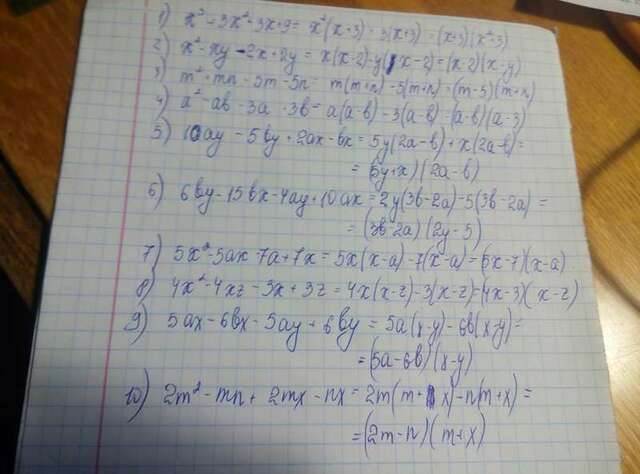 1) x³ + 3x² + 3x + 9 = x²(x + 3) + 3(x + 3) = (x + 3)(x² + 3)
2) x² - xy - 2x + 2y = x(x - 2) - y(x - 2) = (x - 2)(x - y)
3) m² + mn - 5m - 5n = m(m + n) - 5(m + n) = (m - 5)(m + n)
4) a² - ab - 3a + 3b = a(a - b) - 3(a - b) = (a - b)(a - 3)
5) 10ay - 5by + 2ax - bx = 5y(2a - b) + x(2a - b) =
= (5y + x)(2a - b)
6) 6by - 15bx - 4ay + 10ax = 2y(3b - 2a) - 5(3b - 2a) =
= (3b - 2a)(2y - 5)
7) 5x² - 5ax 7a + 7x = 5x(x - a) - 7(x - a) = (5x - 7)(x - a)
8) 4x² - 4xz - 3x + 3z = 4x(x - z) - 3(x - z) = (4x - 3)(x - z)
9) 5ax - 6bx - 5ay + 6by = 5a(x - y) - 6b(x - y) =
= (5a - 6b)(x - y)
10) 2m² - mn + 2mx - nx = 2m(m + x) - n(m + x) =
= (2m - n)(m + x)